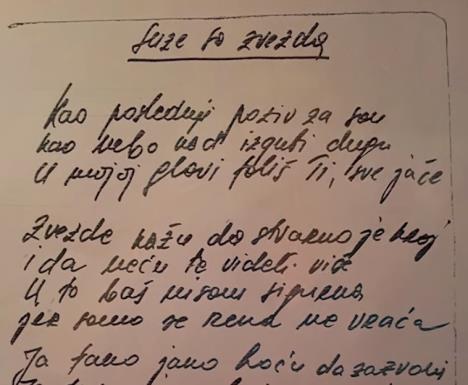 Suze so zvezda
Kao poslednji poziv za san
kao nebo kad izgubi dugu
U mojoj glavi foliš Ti, sve jače
Zvezde kažu da stvarno je kraj
i da neću te videti više
U to baš nisam sigurna
jer samo se rena ne vraća
Ja tano jano hoću da zazvoni